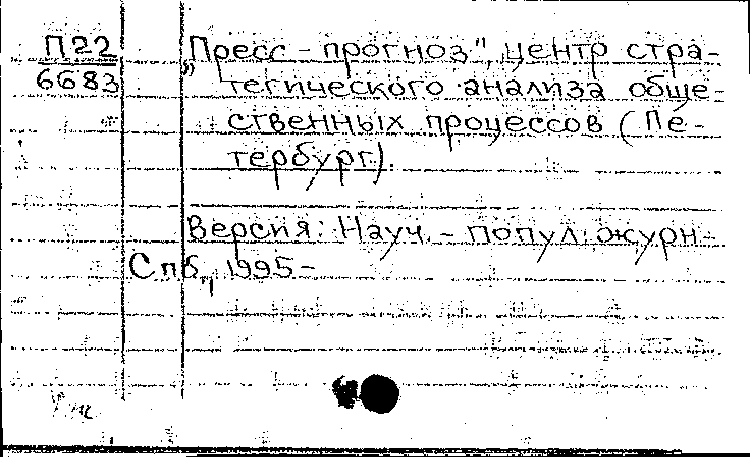 П22
6683
„Пресс - прогноз", центр стра-
тегического анализа обще-
ственных процессов (Пе-
тербург).
Версия: Науч. - попул. журн -
Спб, 1995 -